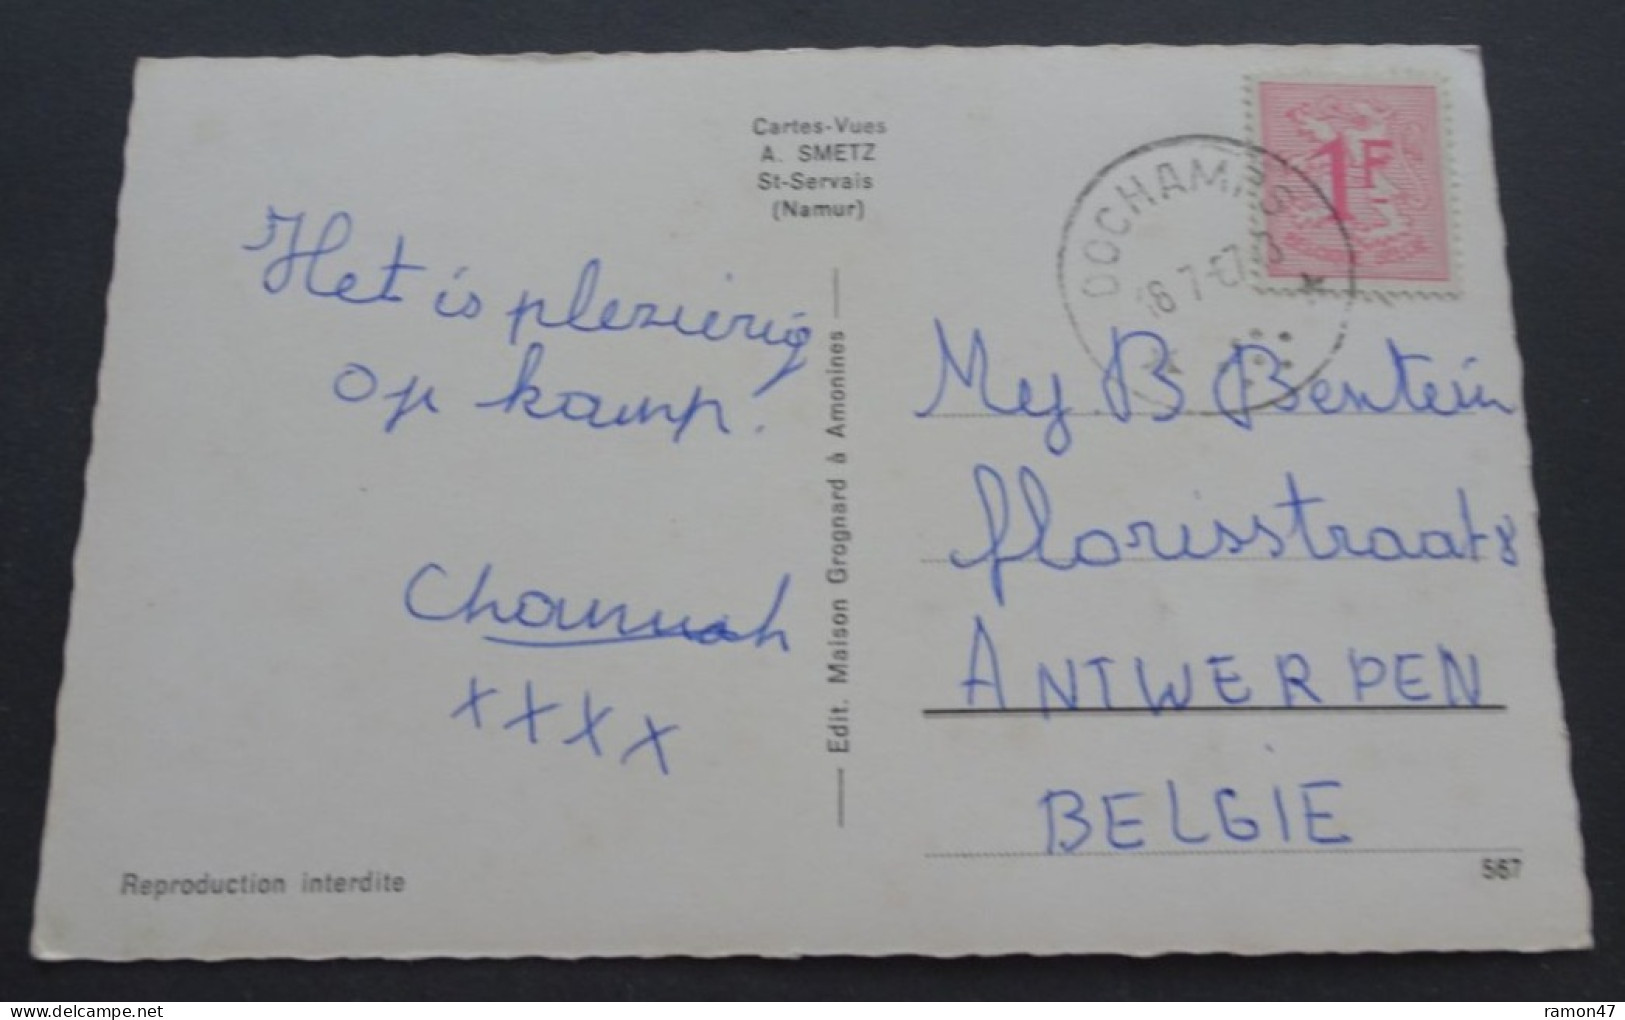 Cartes-Vues
A. SMETZ
St-Servais
(Namur)
Het is plezierig
op kamp!
Channah
xxxx
Reproduction interdite
Edit. Maison Grognard à Amonines
1F
My B Bentein
florisstraat 8
ANTWERPEN
BELGIE
567
delcampe.net
ramon47